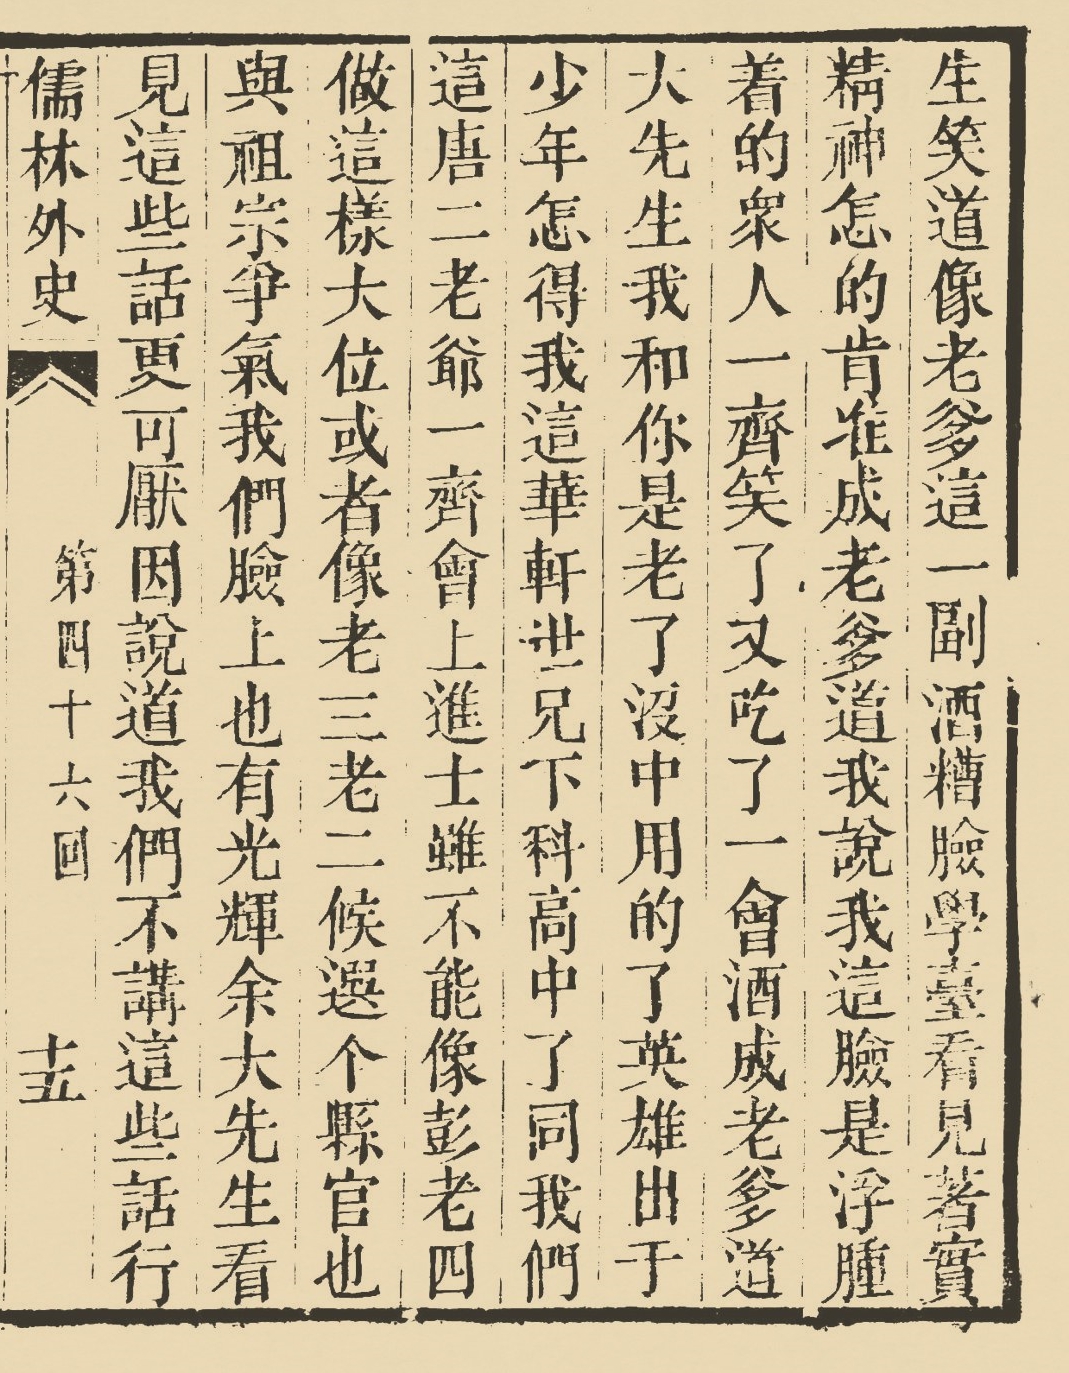 生笑道像老爹這一副酒糟臉學臺看見著實
精神怎的肯准成老爹道我說我這臉是浮腫
着的衆人一齊笑了又吃了一會酒成老爹道
大先生我和你是老了沒中用的了英雄出于
少年怎得我這華軒世兄下科高中了同我們
這唐二老爺一齊會上進士雖不能像彭老四
做這樣大位或者像老三老二候選个縣官也
與祖宗爭氣我們臉上也有光輝余大先生看
見這些話更可厭因說道我們不講這些話行
儒林外史 第四十六回 十五